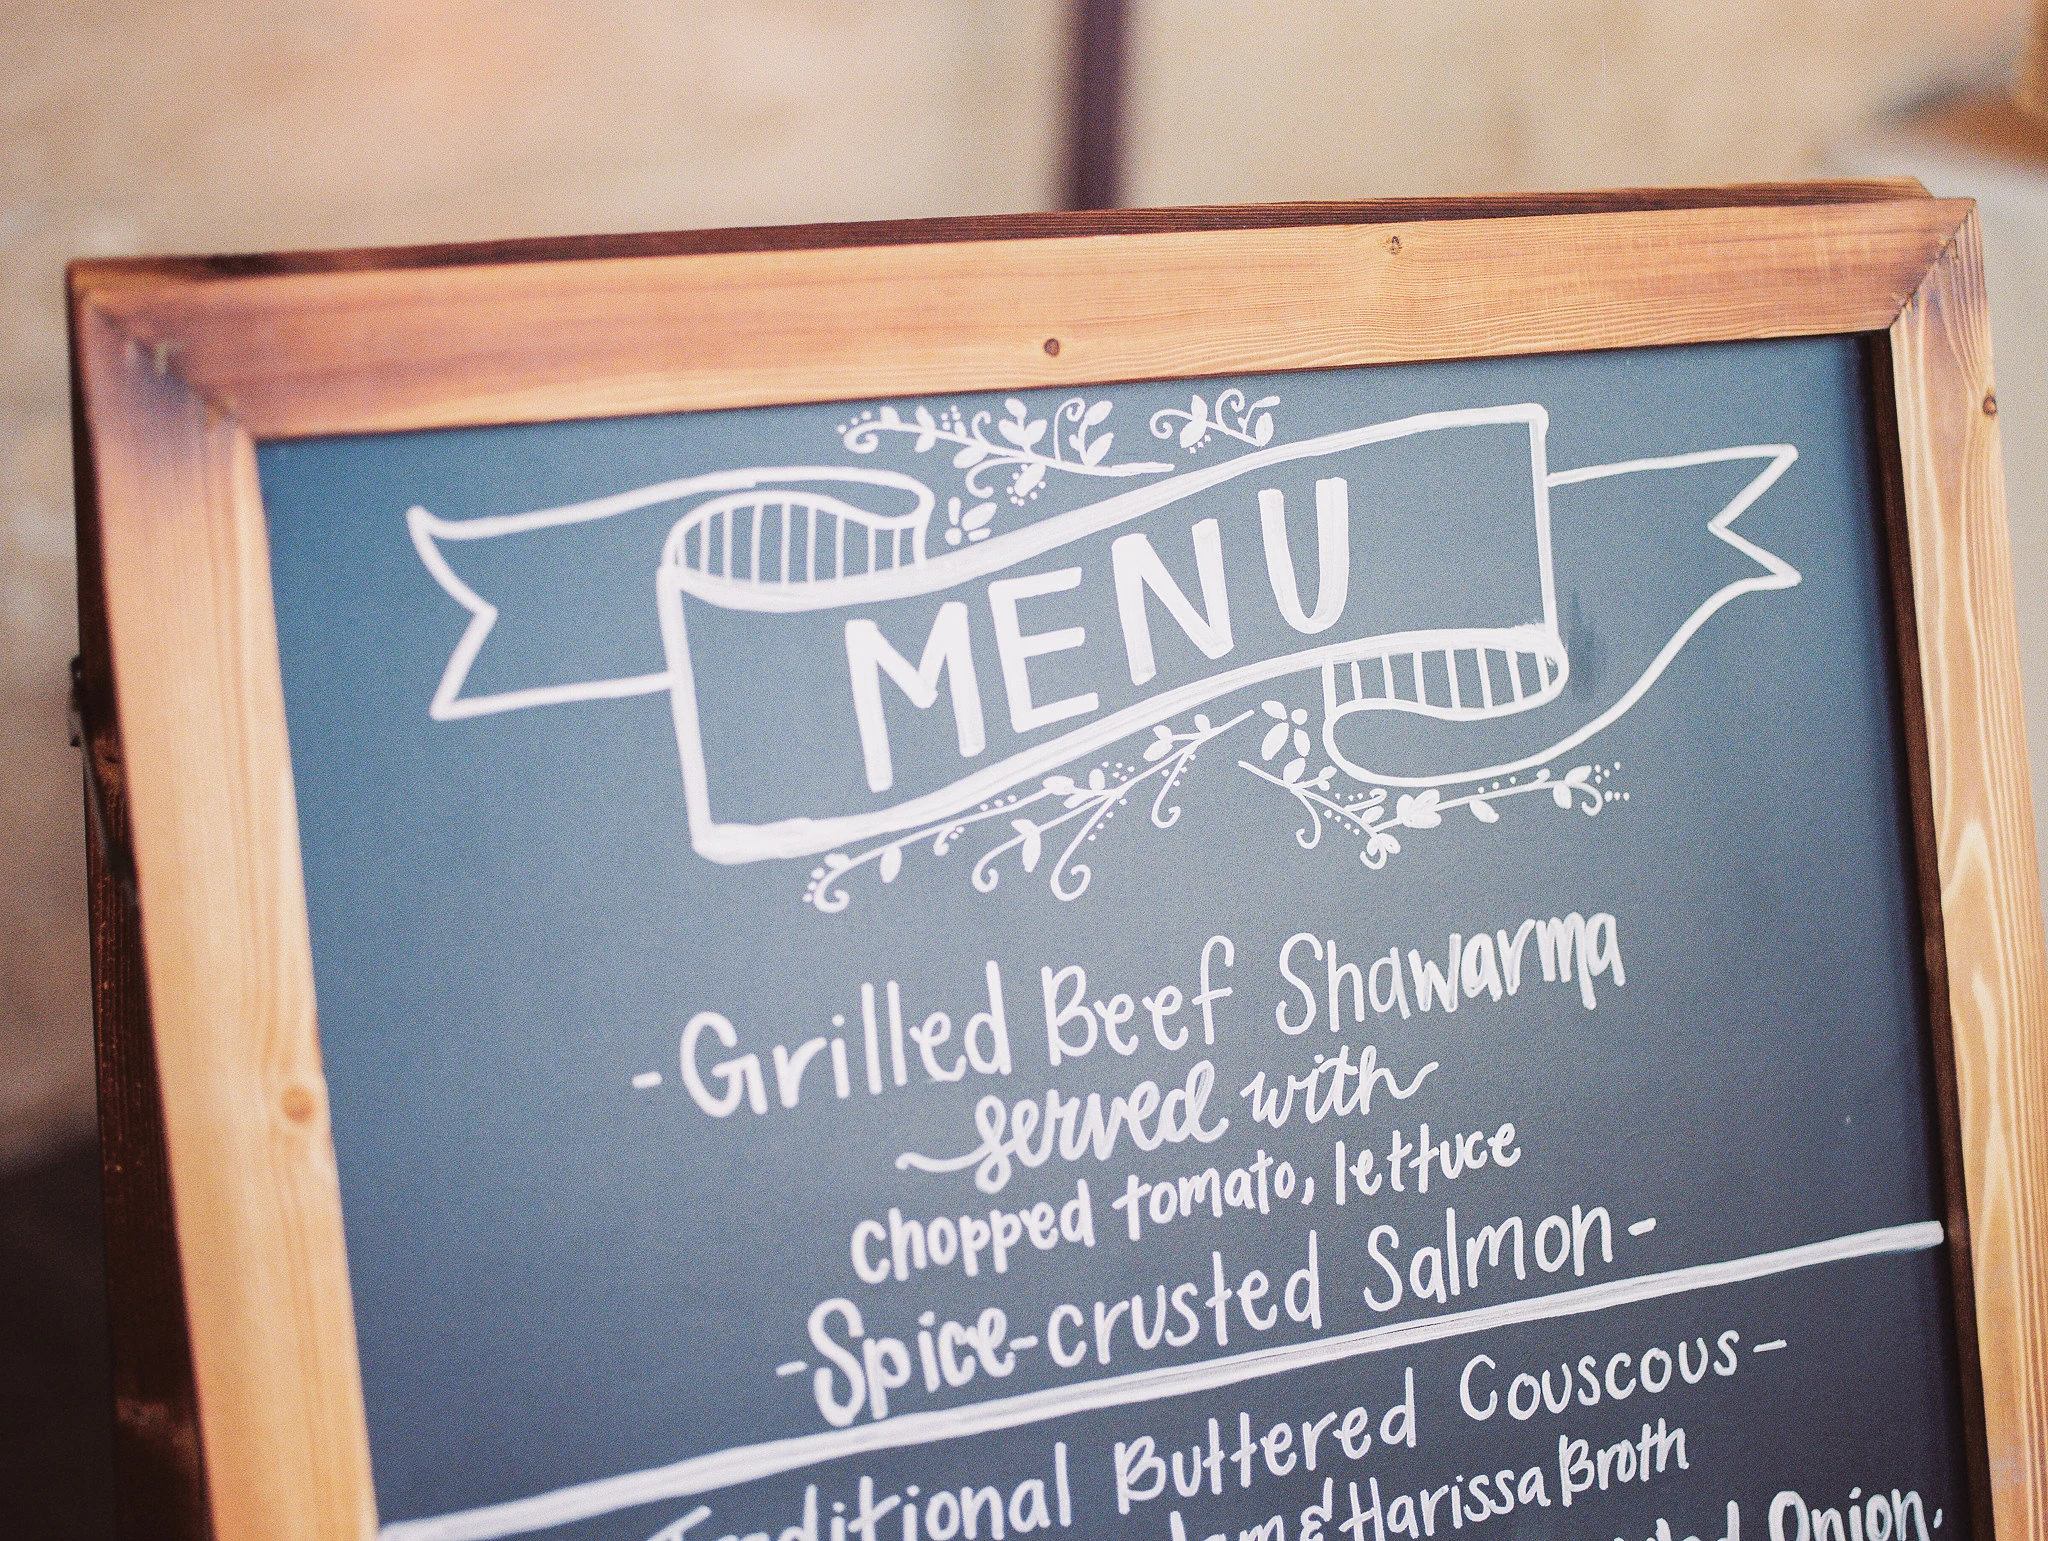 MENU
-Grilled Beef Shawarma
served with
chopped tomato, lettuce
-Spice-crusted Salmon-
Traditional Buttered Couscous-
& Harissa Broth
Onion,